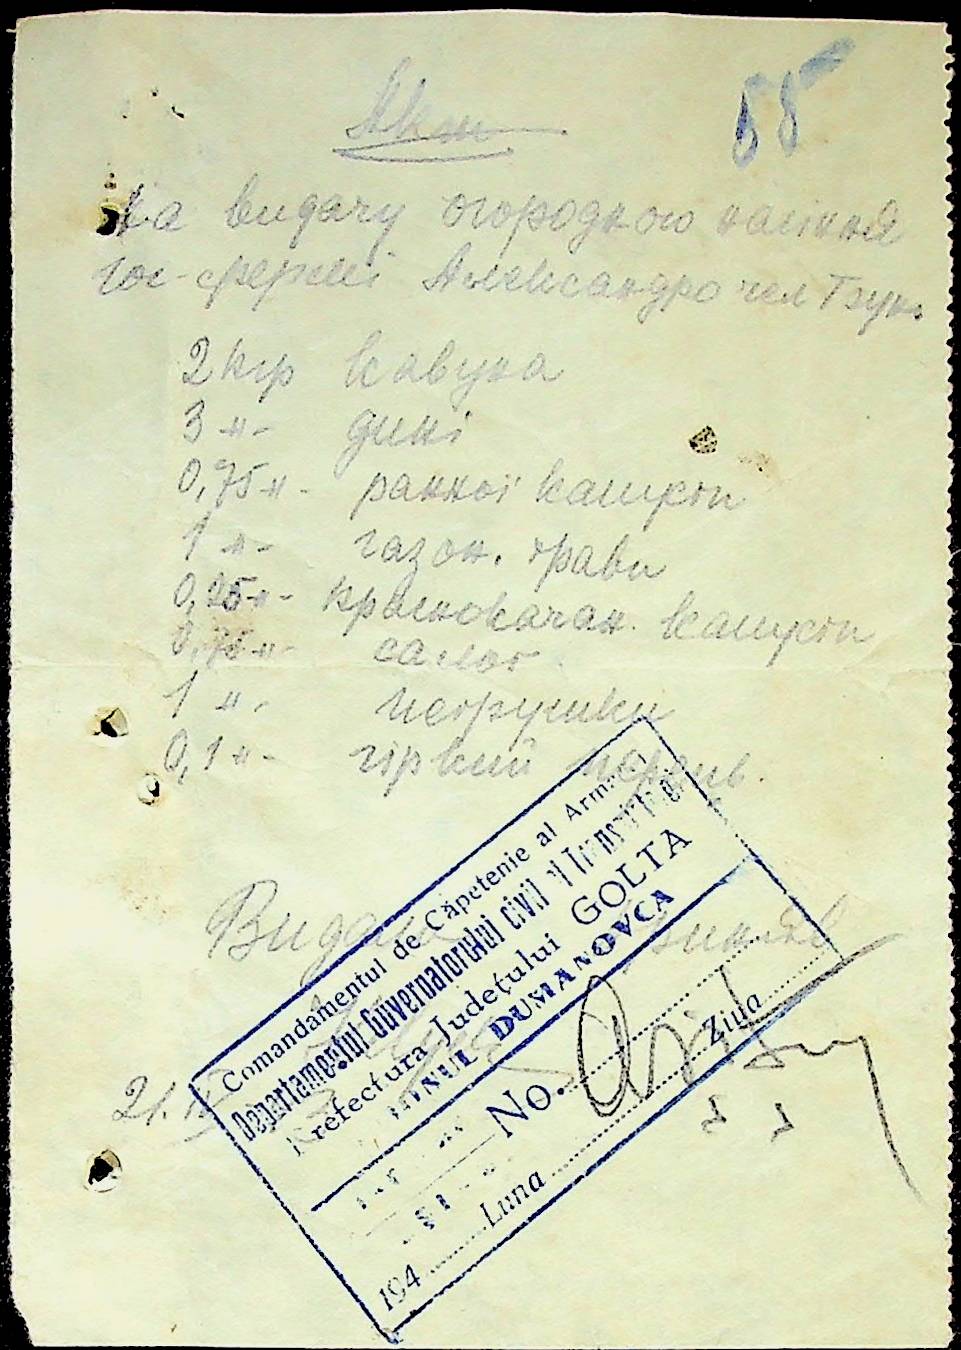 55
Акт
На видачу огородного насіння
гос-фермі Александро
2 кгр кавуна
3 -"- дині
0,75 -"- ранної капусти
1 -"- газон. трави
0,25 -"- капусти
0,75 -"- салат
1 -"- петрушки
0,1 -"- гіркий перець.
Видав
21.
Comandamentul de Căpetenie al Armatei
Departamentul Guvernatorului civil al Transnistriei
Prefectura Județului GOLTA
DUMANOVCA
No.
194 Luna Ziua